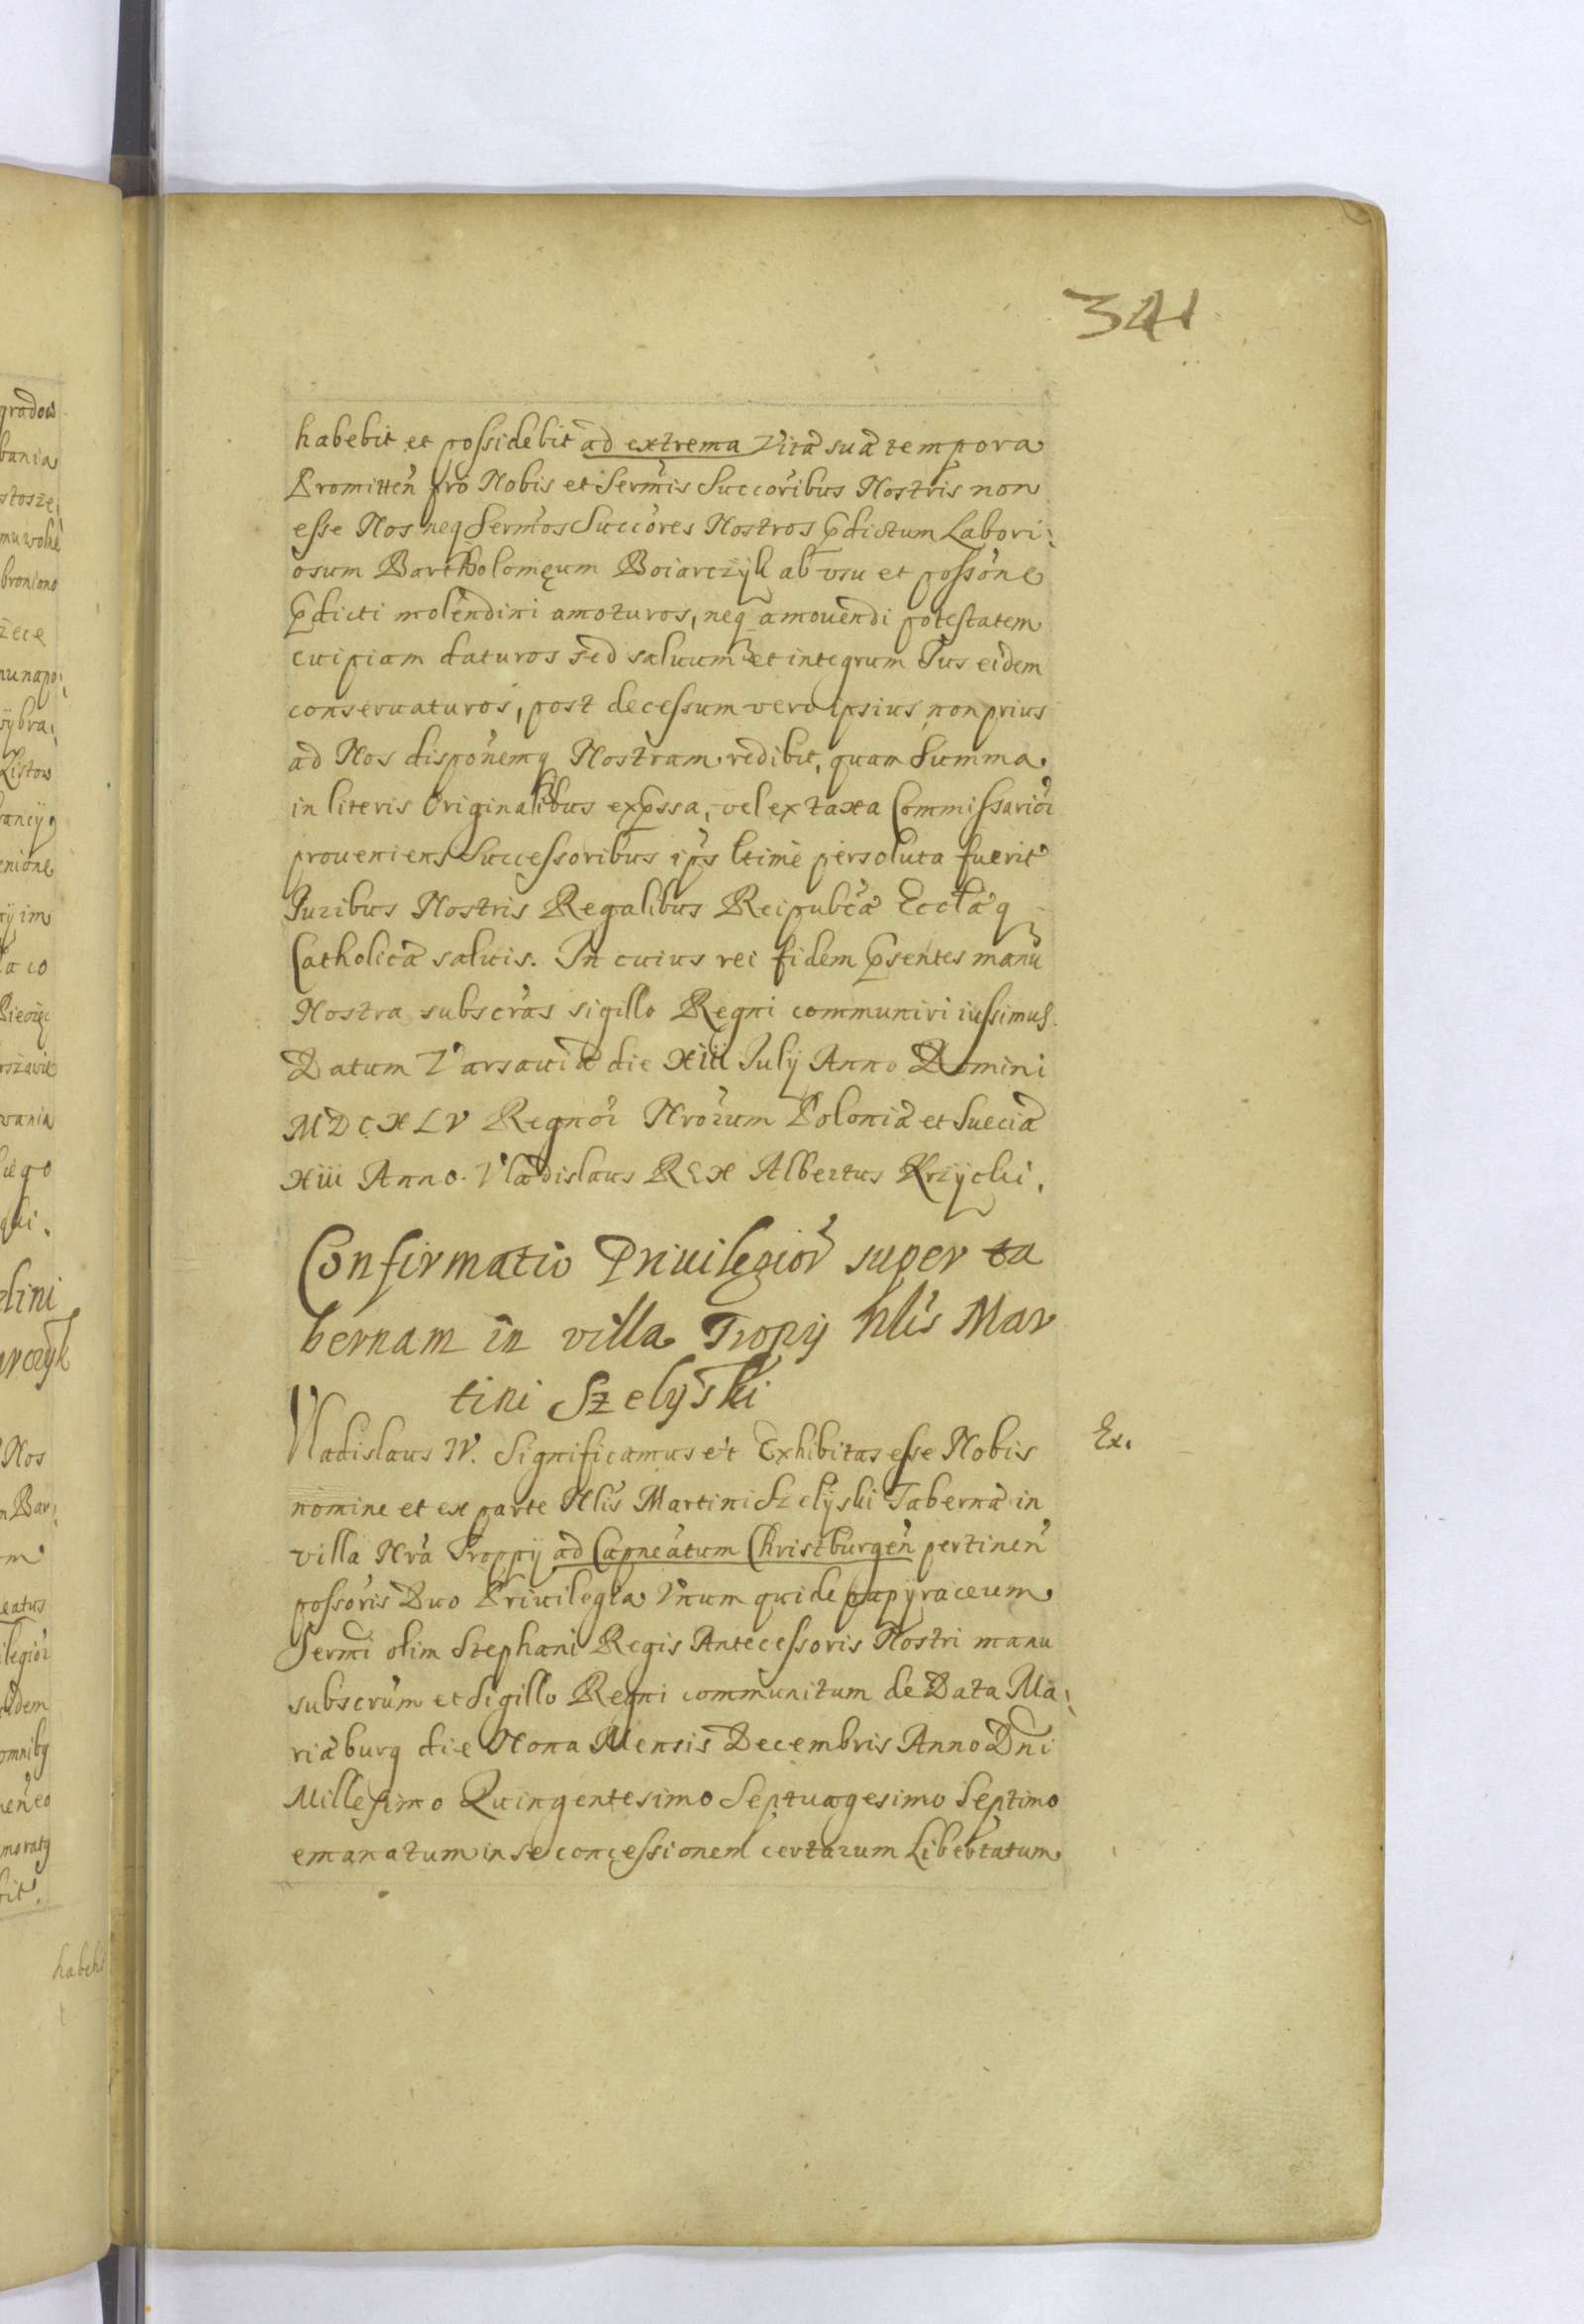 341
habebit et possidebit ad extrema Vitæ suæ tempora
Promitteñ pro Nobis et Sermis Succoribus Nostris non
esse Nos neq Sermos Succores Nostros pdictum Labori:
osum Bartholomęum Boiarczyk ab vsu et possone
pdicti molendini amoturos, neq amouendi potestatem
cuipiam daturos sed saluum et integrum Ius eidem
conseruaturos, post decessum vero ipsius non prius
ad Nos disponemq Nostram redibit, quam Summa
in literis Originalibus expssa, vel ex taxa Commissarior
proueniens Successoribus ips ltime persoluta fuerit
Iuribus Nostris Regalibus Reipubcæ Ecclæq
Catholicæ saluis. In cuius rei fidem psentes manu
Nostra subscras sigillo Regni communiri iussimus.
Datum Varsauiæ die XIII July Anno Domini
MDCXLV Regnor Nrorum Poloniæ et Sueciæ
XIII Anno. Vladislaus REX Albertus Krzycki.
Confirmatio Priuilegior super ta
bernam in villa Tropy Nlis Mar
tini Szelyski
Vladislaus IV. Significamus et Exhibitas esse Nobis
Ex.
nomine et ex parte Nlis Martini Szelyski Tabernæ in
villa Nra Troppy ad Capneatum Christburgeñ pertineñ
possoris Duo Priuilegia Vnum quide papyraceum
Sermi olim Stephani Regis Antecessoris Nostri manu
subscrum et Sigillo Regni communitum de Data Ma:
riæburg die Nona Mensis Decembris Anno Dni
Millesimo Quingentesimo Septuagesimo Septimo
emanatum in se concessionem certarum Libertatum